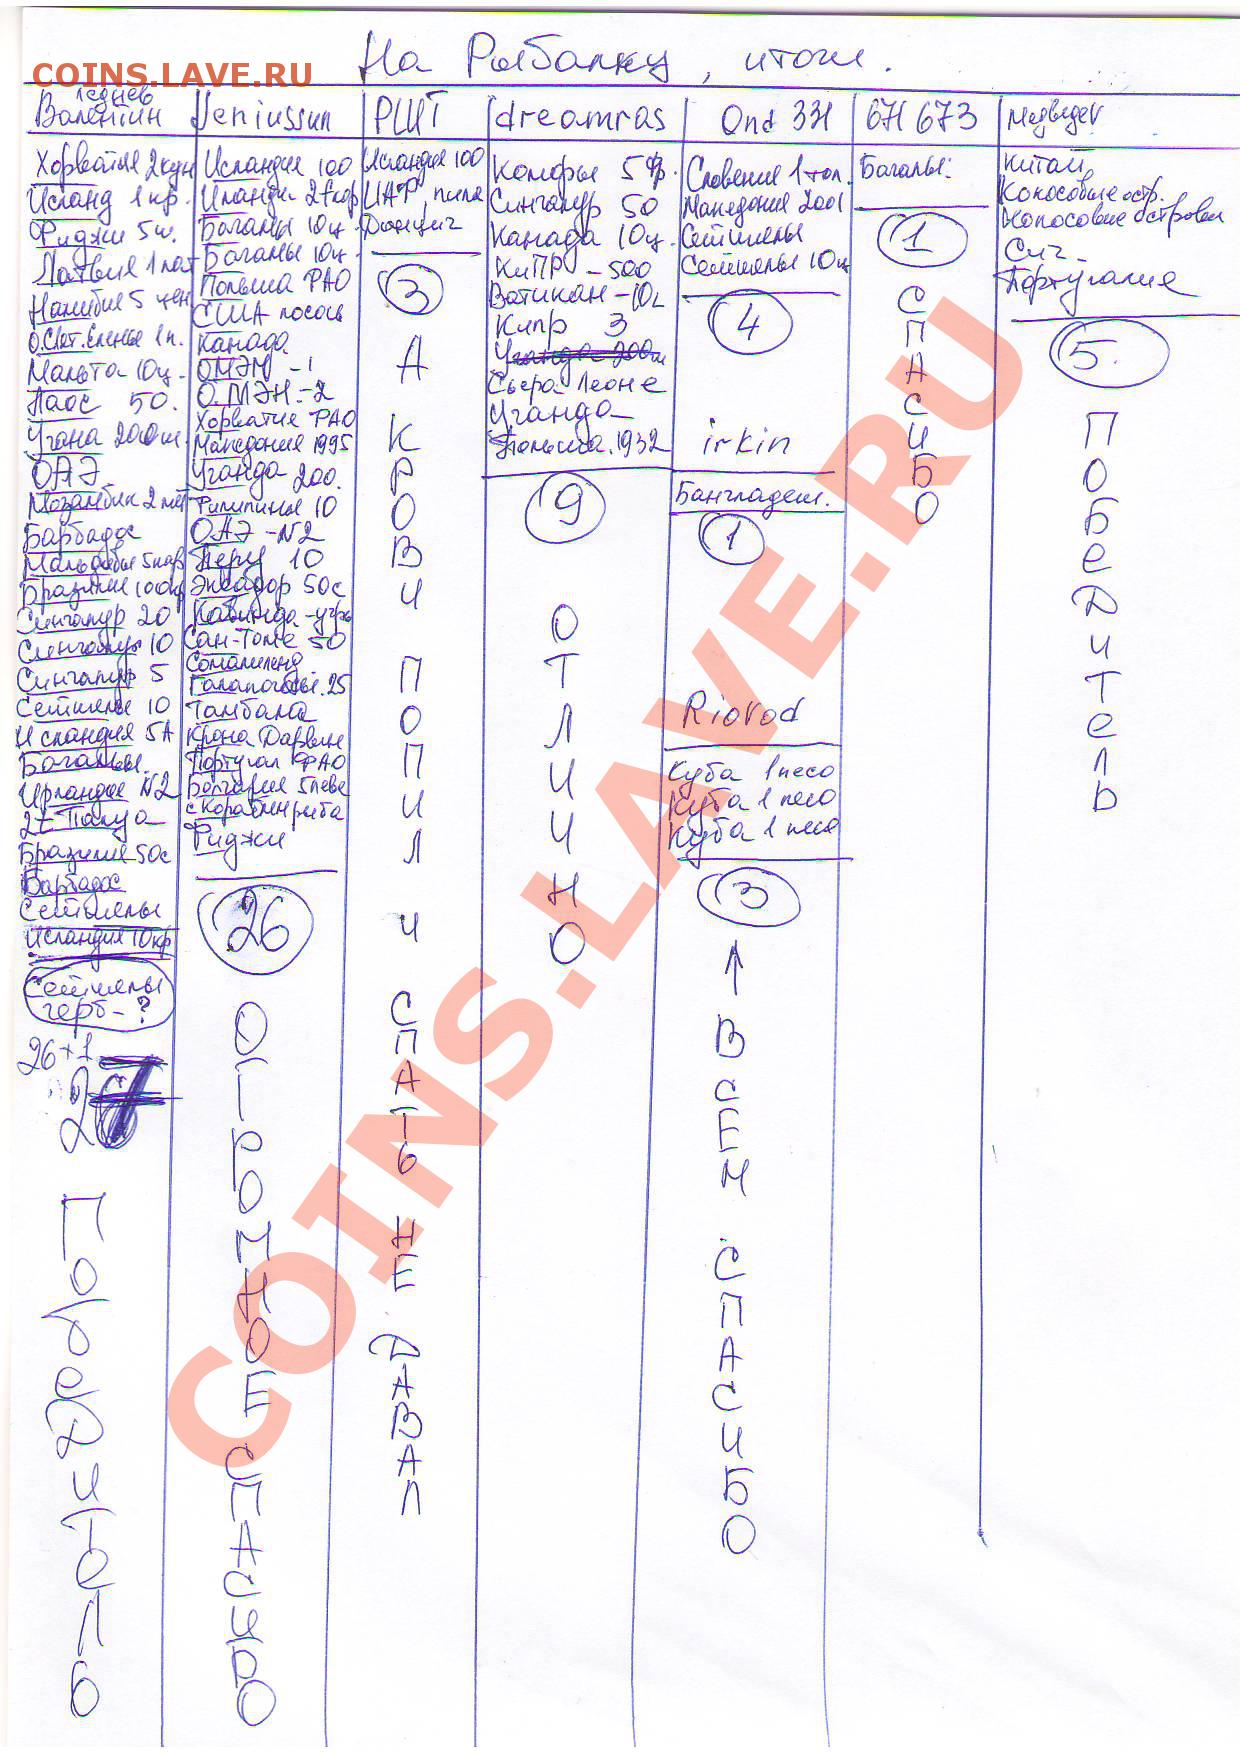 COINS.LAVE.RU
На Рыбалку, итоги.
Леднев
Валентин
Хорватия 2 кун
Исланд 1 кр.
Фиджи 5 ц.
Латвия 1 лат
Намибия 5 цен
О. Свят. Елены 1 п.
Мальта 10 ц.
Лаос 50.
Угана 200 ш.
ОАЭ
Мозамбик 2 мет
Барбадос
Мальдивы 5 лар
Бразилия 100 кр
Сингапур 20
Сингапур 10
Сингапур 5
Сейшелы 10
Исландия 5 А
Багамы.
Ирландия N2
2t Папуа
Бразилия 50 с
Барбадос
Сейшелы
Исландия 10 кр
Сейшелы
герб - ?
26 + 1
27
ПОБЕДИТЕЛЬ
Veniussun
Исландия 100
Багамы 10 ц.
Багамы 10 ц.
Польша ФАО
США лосось
Канада
ОМЭН - 1
О.МЭН - 2
Хорватия ФАО
Македония 1995
Уганда 200.
Филипины 10
ОАЭ - N2
Перу 10
Эквадор 50 с
Кабинда - угрь
Сан-Томе 50
Сомалиленд
Галапагосы. 25
Тамбала
Крона Дарвин
Португал ФАО
Болгария 5 леве
с Кораблин рыба
Фиджи
26
ОГРОМНОЕ СПАСИБО
РШТ
Исландия 100
ЦАР, пила
Данциг
3
А КРОВИ ПОПИЛ И СПАТЬ НЕ ДАВАЛ
dreamras
Коморы 5 ф.
Сингапур 50
Канада 10 ц.
КиПР - 500
Ватикан - 10 L
Кипр 3
Уганда 200 ш
Сьера Леоне
Уганда
Польша. 1932
9
ОТЛИЧНО
Ond 331
Словения 1 тол.
Македония 2001
Сейшелы
Сейшелы 10 ц
4
irkin
Бангладеш.
1
Riovod
Куба 1 песо
Куба 1 песо
Куба 1 песо
3
ВСЕМ СПАСИБО
671 673
Багамы:
1
СПАСИБО
Медведеv
Китай,
Кокосовые остр.
Кокосовые острова
Сиг-
Португалия
5.
ПОБЕДИТЕЛЬ
COINS.LAVE.RU